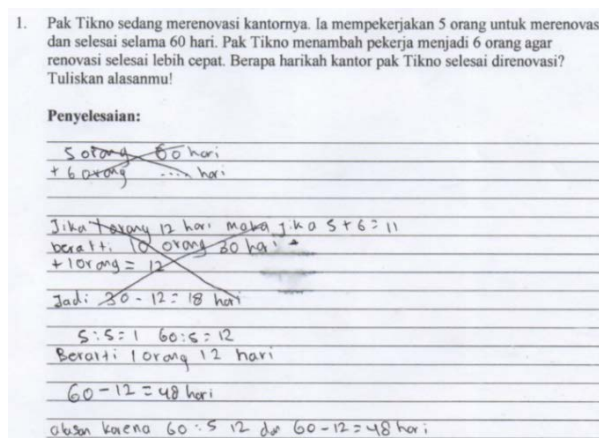 1. Pak Tikno sedang merenovasi kantornya. Ia mempekerjakan 5 orang untuk merenovas
dan selesai selama 60 hari. Pak Tikno menambah pekerja menjadi 6 orang agar
renovasi selesai lebih cepat. Berapa harikah kantor pak Tikno selesai direnovasi?
Tuliskan alasanmu!
Penyelesaian:
5 orang 60 hari
+ 6 orang .... hari
Jika 1 orang 12 hari maka jika 5 + 6 = 11
beratti 10 orang 30 hari
+ 1 orang = 12
Jadi 30 - 12 = 18 hari
5 : 5 = 1 60 : 5 = 12
Beratti 1 orang 12 hari
60 - 12 = 48 hari
alasan karena 60 : 5 12 dan 60 - 12 = 48 hari